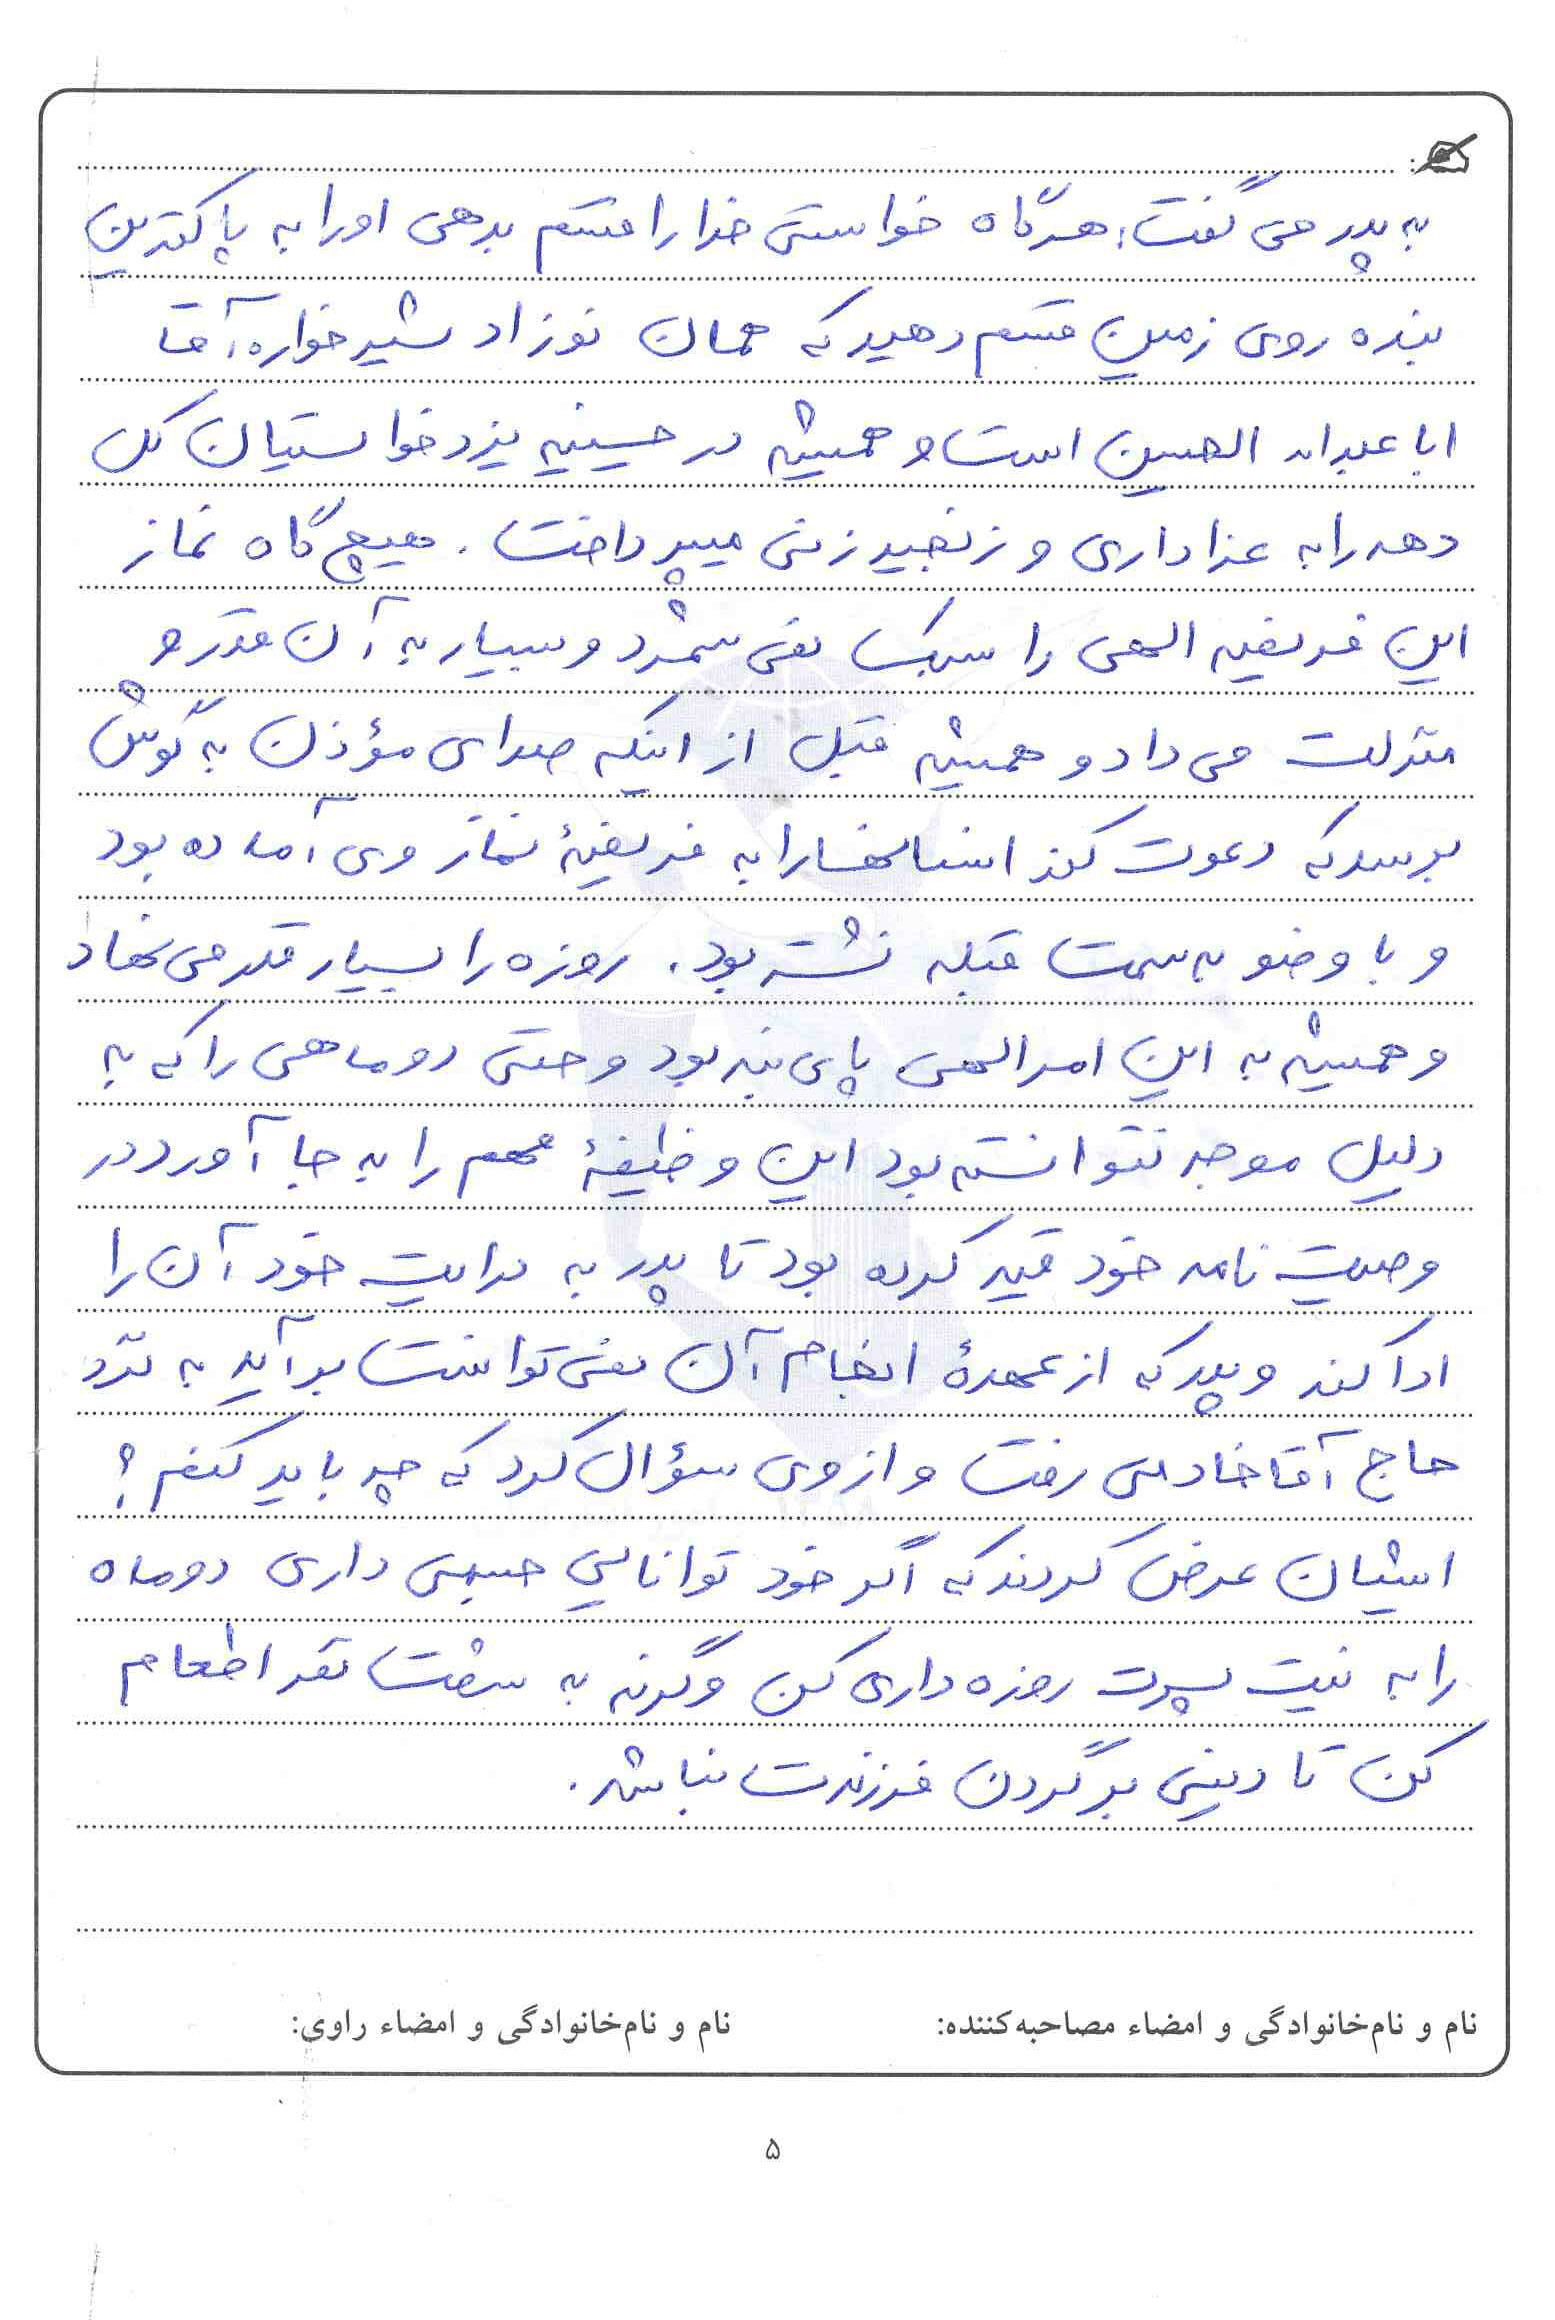 به پدر می گفت: هرگاه خواستی خدا را قسم بدهی او را به پاکترین
بنده روی زمین قسم دهید که همان نوزاد شیرخواره آقا
ابا عبداله الحسین است و همیشه در حسینیه یزدخواستیان کل
دهه را به عزاداری و زنجیر زنی میپرداخت. هیچ گاه نماز
این فریضه الهی را سبک نمی شمرد و بسیار به آن قدر و
منزلت می داد و همیشه قبل از اینکه صدای مؤذن به گوش
برسد که دعوت کند انسانها را به فریضهٔ نماز وی آماده بود
و با وضو به سمت قبله نشسته بود. روزه را بسیار قدر می نهاد
و همیشه به این امر الهی پای بند بود و حتی دو ماهی را که به
دلیل موجه نتوانسته بود این وظیفهٔ مهم را به جا آورد در
وصیت نامه خود قید کرده بود تا پدر به درایت خود آن را
ادا کند و پدر که از عهدهٔ انجام آن نمی توانست برآید به نزد
حاج آقا خادمی رفت و از وی سؤال کرد که چه باید کنم؟
ایشان عرض کردند که اگر خود توانایی جسمی داری دو ماه
را به نیت پسرت روزه داری کن وگرنه به شصت نفر اطعام
کن تا دینی بر گردن فرزندت نباشد.
نام و نام‌خانوادگی و امضاء مصاحبه‌کننده: نام و نام‌خانوادگی و امضاء راوی:
۵